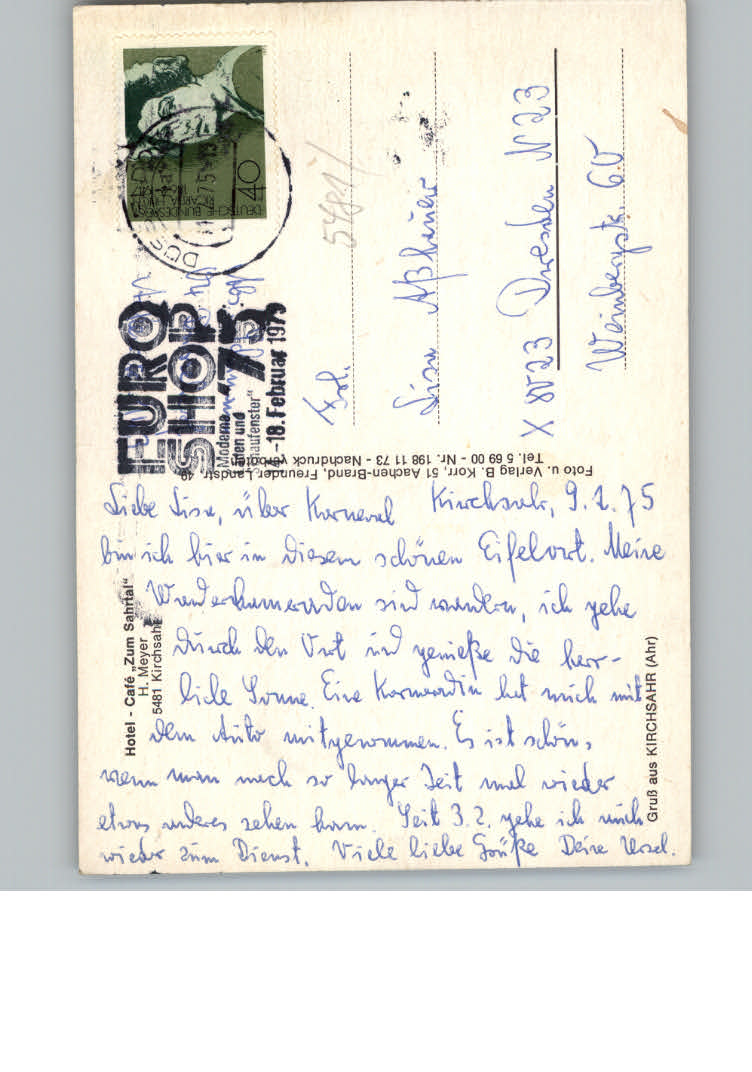 Liebe Lisa, über Karneval Kirchsahr, 9.2.75
bin ich hier in diesem schönen Eifelort. Meine
Wanderkameraden sind wandern, ich gehe
durch den Ort und genieße die herr-
liche Sonne. Eine Kameradin hat mich mit
dem Auto mitgenommen. Es ist schön,
wenn man nach so langer Zeit mal wieder
etwas anderes sehen kann. Seit 3.2. gehe ich auch
wieder zum Dienst. Viele liebe Grüße Deine Ursel.
Hotel - Café „Zum Sahrtal"
H. Meyer
5481 Kirchsahr
Gruß aus KIRCHSAHR (Ahr)
Foto u. Verlag B. Korr, 51 Aachen-Brand, Freunder Landstr. 49
Tel. 5 69 00 - Nr. 198 11 73 - Nachdruck verboten
EURO
SHOP
'75
Moderne
Läden und
Schaufenster"
-18. Februar 1975
DEUTSCHE BUNDESPOST
RICARDA HUCH
40
5481/
Frl.
Lisa
X 8023 Dresden N 23
Weinbergstr. 60